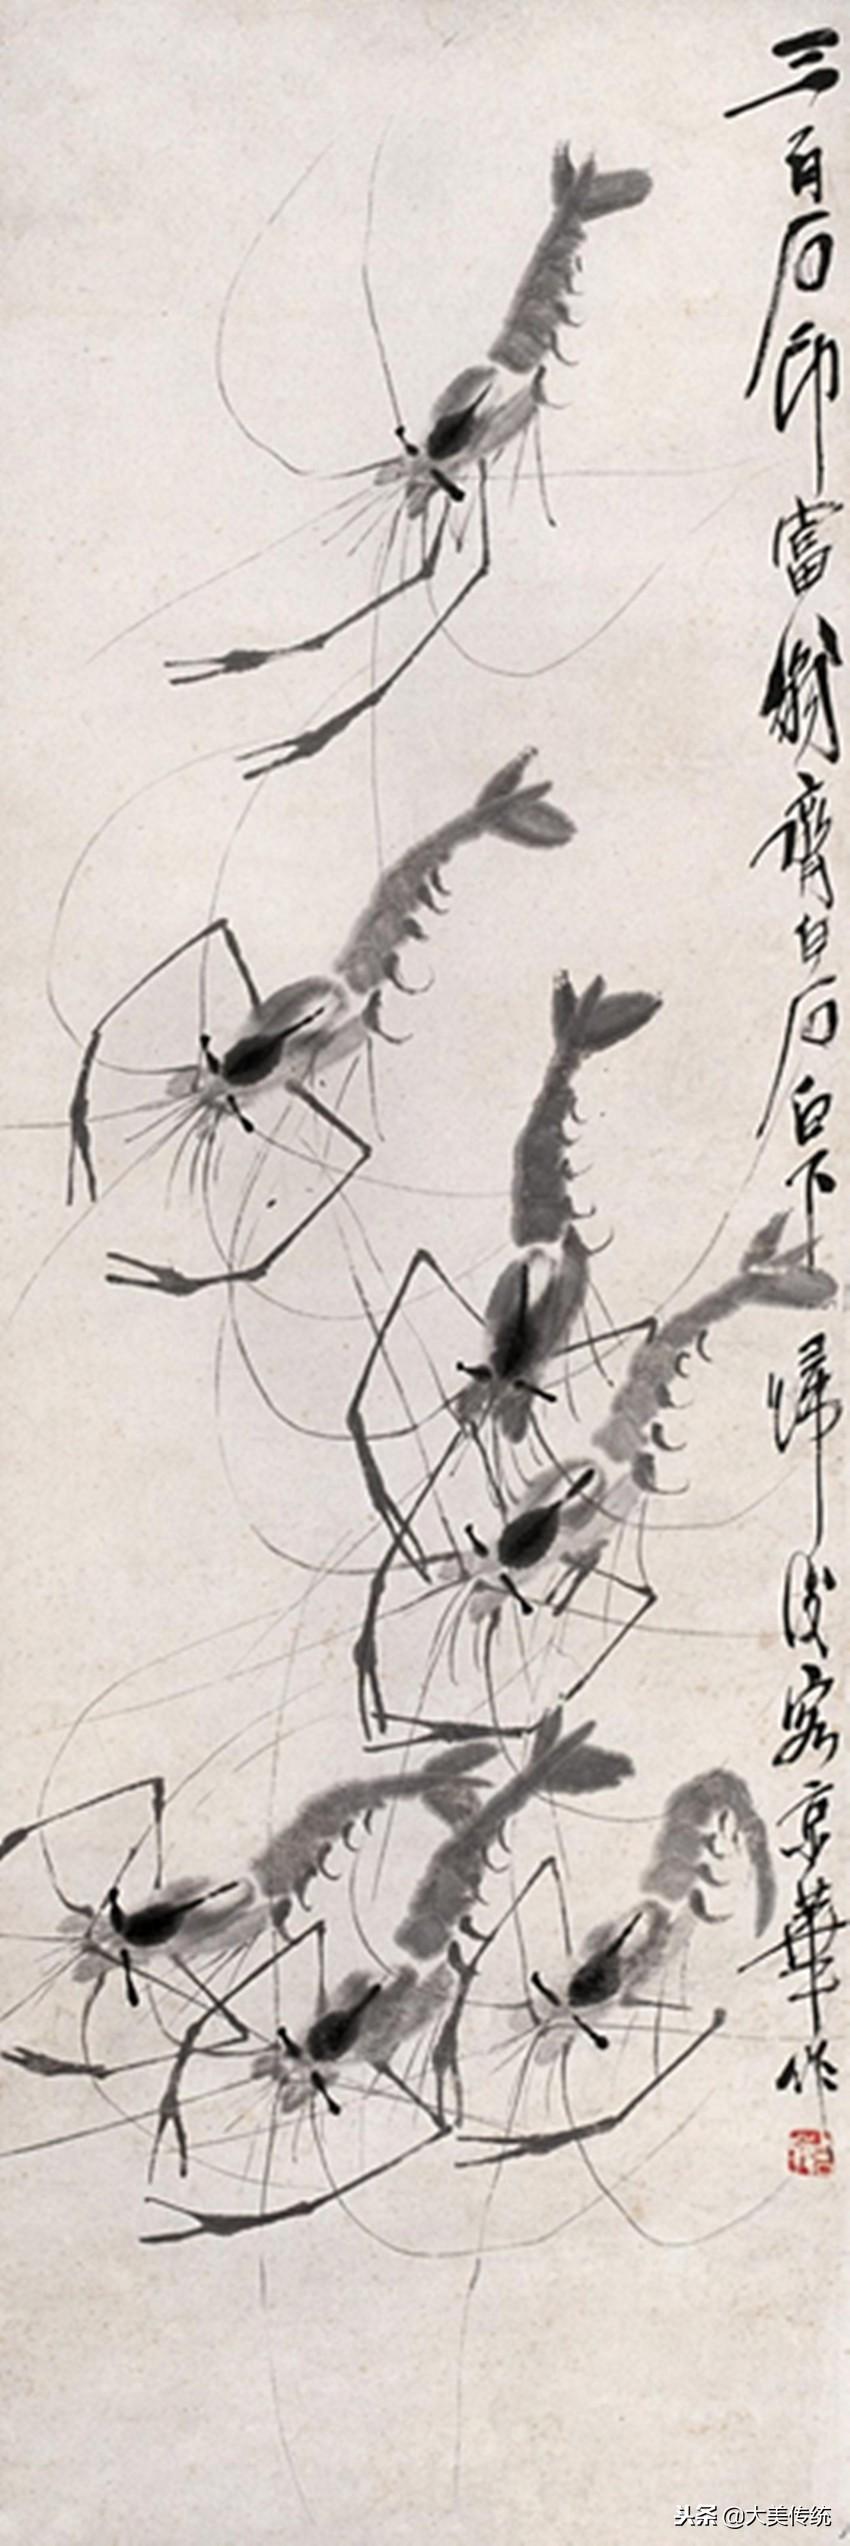 三百石印富翁齊白石白下歸後客京華作
头条 @大美传统